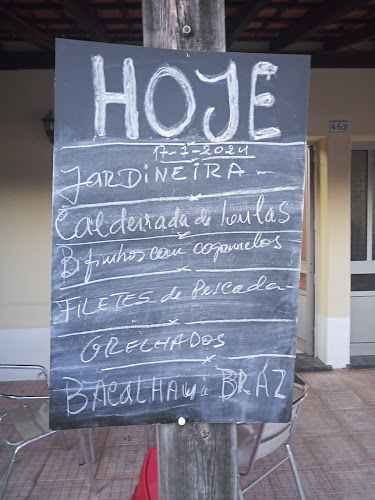 HOJE
17-7-2024
JARDINEIRA
Caldeirada de lulas
Bifinhos com cogumelos
FILETES de Pescada
GRELHADOS
BACALHAU à BRÁZ
462